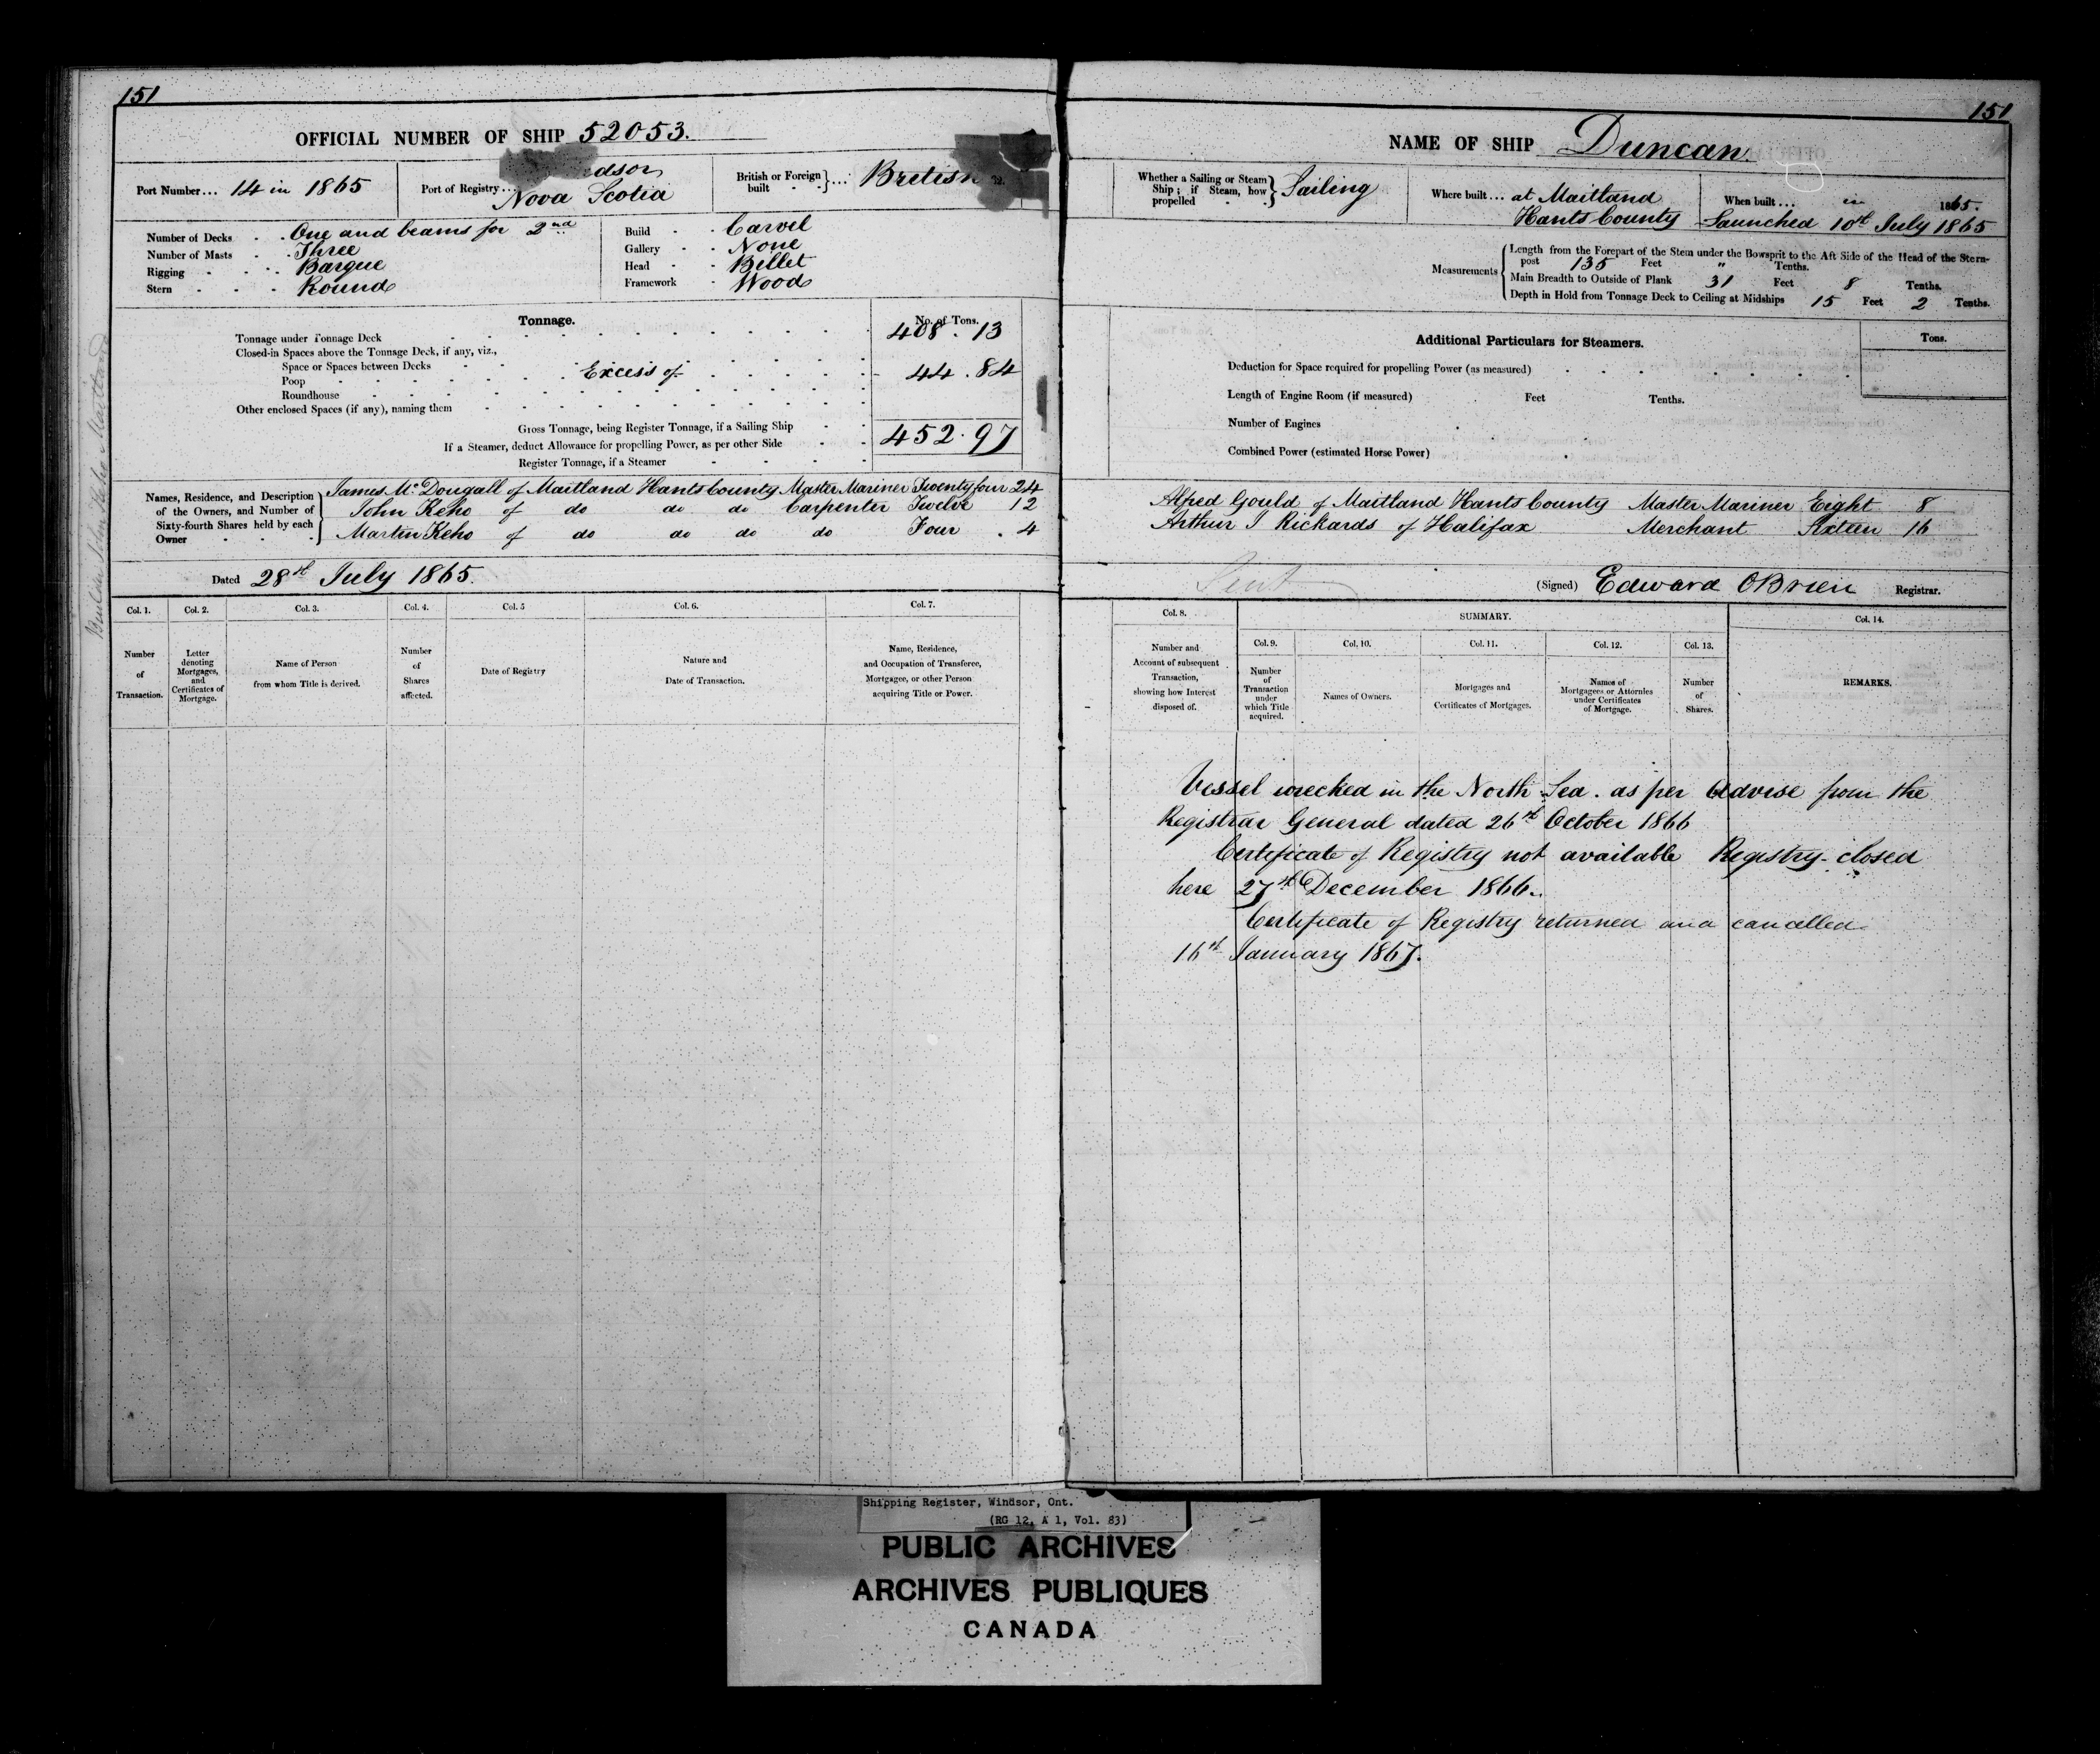 151
OFFICIAL NUMBER OF SHIP 52053.
Port Number... 14 in 1865
Port of Registry... dsor
Nova Scotia
British or Foreign built } ... British
Number of Decks One and beams for 2nd
Number of Masts Three
Rigging Barque
Stern Round
Build Carvel
Gallery None
Head Billet
Framework Wood
Tonnage.
No. of Tons.
Tonnage under Tonnage Deck 408.13
Closed-in Spaces above the Tonnage Deck, if any, viz.,
Space or Spaces between Decks
Poop Excess of 44.84
Roundhouse
Other enclosed Spaces (if any), naming them
Gross Tonnage, being Register Tonnage, if a Sailing Ship 452.97
If a Steamer, deduct Allowance for propelling Power, as per other Side
Register Tonnage, if a Steamer
Names, Residence, and Description of the Owners, and Number of Sixty-fourth Shares held by each Owner
James McDougall of Maitland Hants County Master Mariner Twenty four 24
John Keho of do do do Carpenter Twelve 12
Martin Keho of do do do do Four 4
Dated 28th July 1865.
Col. 1. Col. 2. Col. 3. Col. 4. Col. 5 Col. 6. Col. 7.
Number of Transaction.
Letter denoting Mortgages, and Certificates of Mortgage.
Name of Person from whom Title is derived.
Number of Shares affected.
Date of Registry
Nature and Date of Transaction.
Name, Residence, and Occupation of Transferee, Mortgagee, or other Person acquiring Title or Power.
Builder John Keho Maitland
151
NAME OF SHIP Duncan
Whether a Sailing or Steam Ship; if Steam, how propelled } Sailing
Where built... at Maitland
Hants County
When built... in 1865.
Launched 10th July 1865
Measurements
Length from the Forepart of the Stem under the Bowsprit to the Aft Side of the Head of the Stern-
post 135 Feet " Tenths.
Main Breadth to Outside of Plank 31 Feet 8 Tenths.
Depth in Hold from Tonnage Deck to Ceiling at Midships 15 Feet 2 Tenths.
Additional Particulars for Steamers.
Tons.
Deduction for Space required for propelling Power (as measured)
Length of Engine Room (if measured) Feet Tenths.
Number of Engines
Combined Power (estimated Horse Power)
Alfred Gould of Maitland Hants County Master Mariner Eight 8
Arthur J Rickards of Halifax Merchant Sixteen 16
Sent
(Signed) Edward OBrien Registrar.
Col. 8.
SUMMARY.
Col. 14.
Col. 9. Col. 10. Col. 11. Col. 12. Col. 13.
Number and Account of subsequent Transaction, showing how Interest disposed of.
Number of Transaction under which Title acquired.
Names of Owners.
Mortgages and Certificates of Mortgages.
Names of Mortgagees or Attornies under Certificates of Mortgage.
Number of Shares.
REMARKS.
Vessel wrecked in the North Sea. as per Advise from the
Registrar General dated 26th October 1866
Certificate of Registry not available Registry closed
here 27th December 1866.
Certificate of Registry returned and cancelled
16th January 1867.
Shipping Register, Windsor, Ont.
(RG 12, A 1, Vol. 83)
PUBLIC ARCHIVES
ARCHIVES PUBLIQUES
CANADA